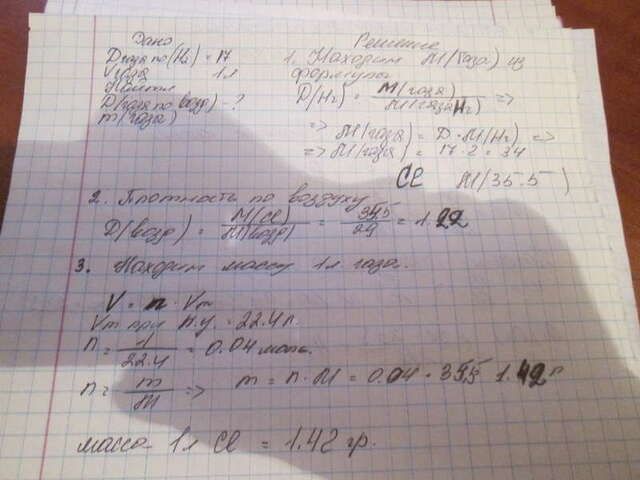 Дано
D газа по (H₂) = 17
V газа 1 л
Найти
D(газа по возд) - ?
m(газа)
Решение
1. Находим M(газа) из
формулы
D(H₂) = M(газа) / M(газа H₂) =>
=> M(газа) = D · M(H₂) =>
=> M(газа) = 17 · 2 = 34
Cl M(35.5)
2. Плотность по воздуху
D(возд) = M(Cl) / M(возд) = 35,5 / 29 = 1.22
3. Находим массу 1 л газа.
V = n · Vm
Vm при н.у. = 22.4 л.
n = 1 / 22.4 = 0.04 моль.
n = m / M => m = n · M = 0.04 · 35,5 1.42 г
масса 1 л Cl = 1.42 гр.